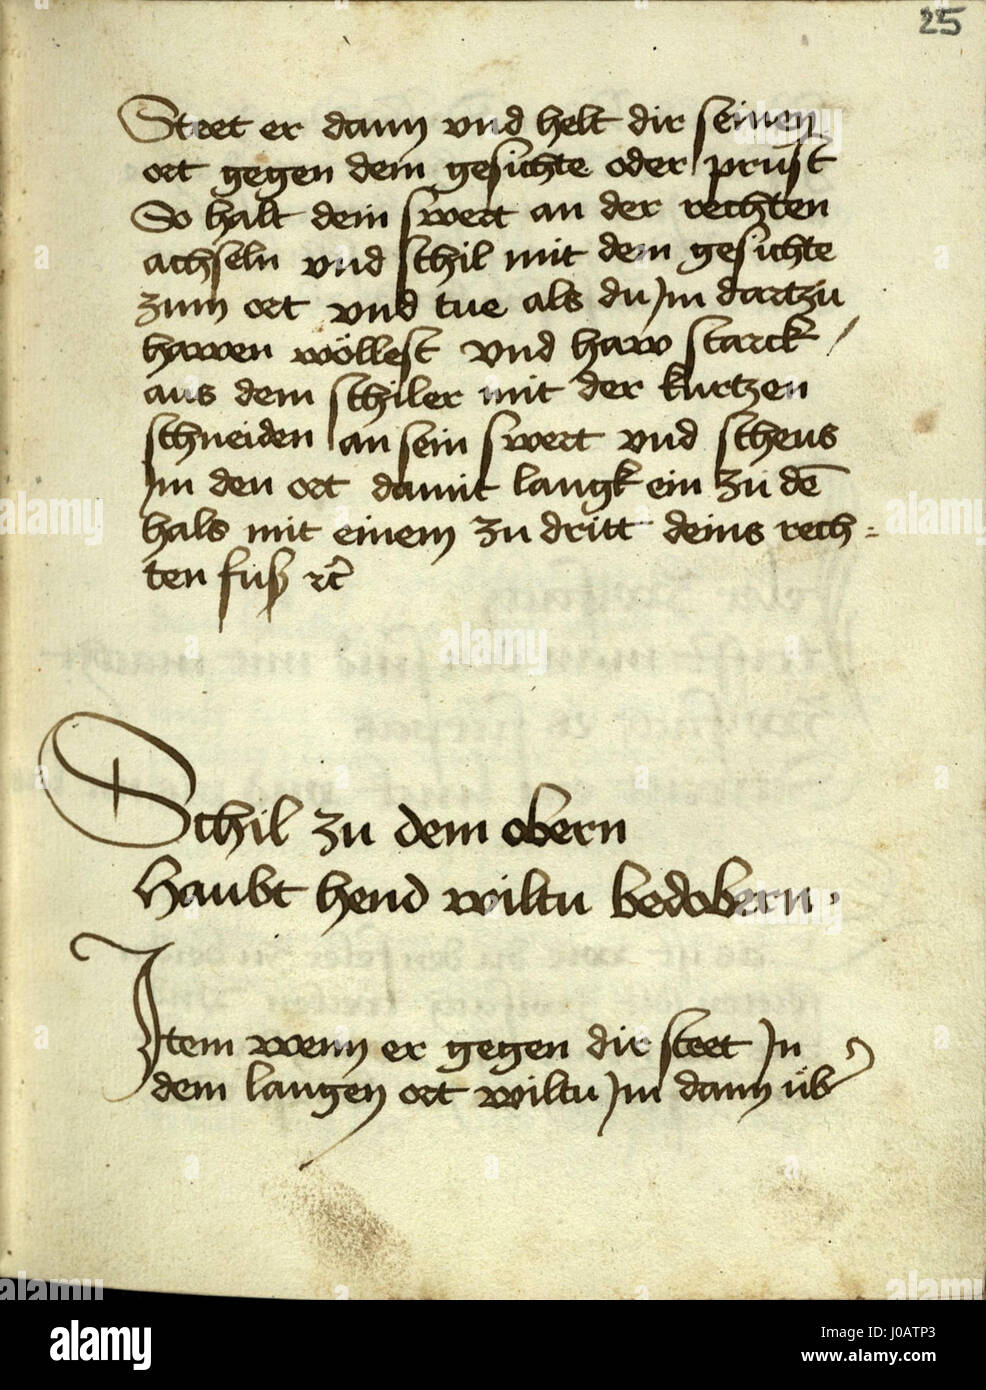 25
Steet er dann vnd helt dir seinen
ort gegen dem gesichte oder prust
So halt dein swert an der rechten
achseln vnd schil mit dem gesichte
zum ort vnd tue als du jm dartzu
hawen wöllest vnd haw starck /
aus dem schiler mit der kurtzen
schneiden an sein swert vnd scheus
jm den ort damit langk ein zu dē
hals mit einem zu dritt deins rech=
ten fuß rc̄
Schil zu dem obern
Haubt hend wiltu bedobern.
Item wenn er gegen dir steet jn
dem langen ort wiltu jm dann üb
alamy
Image ID: J0ATP3
www.alamy.com